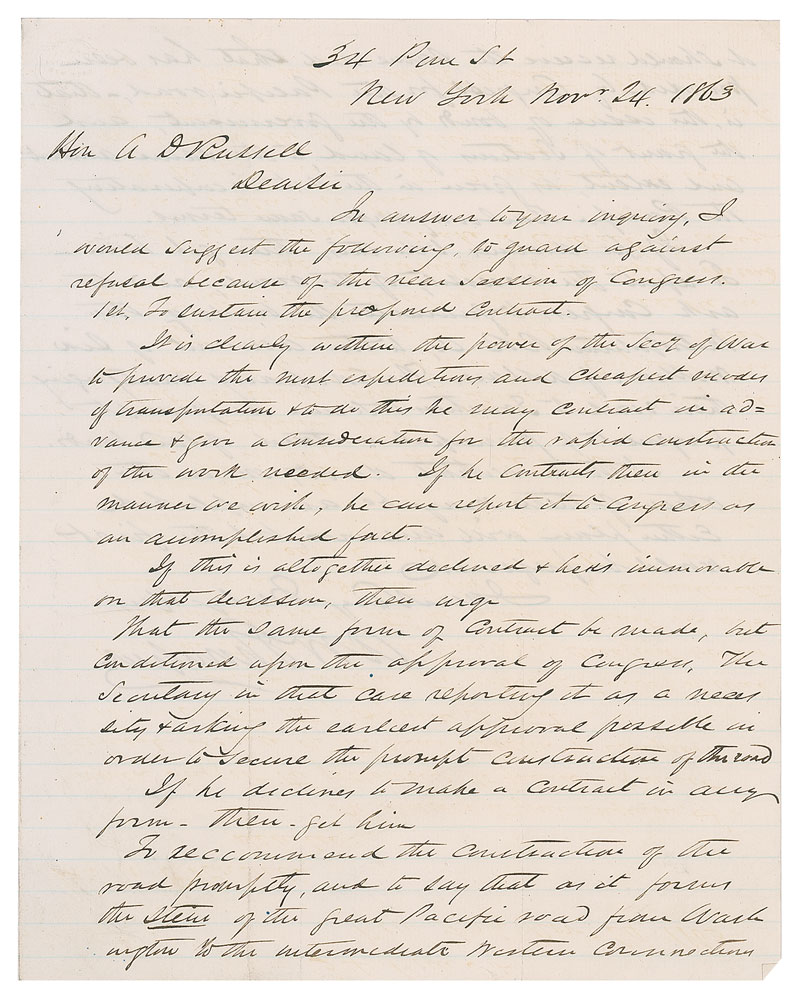 34 Pine St
New York Novr 24. 1863
Hon A D Russell
Dear Sir
In answer to your inquiry, I
would suggest the following, to guard against
refusal because of the near Session of Congress.
1st. To sustain the proposed Contract.
It is clearly within the power of the Secy of War
to provide the most expeditious and cheapest modes
of transportation & to do this he may contract in ad=
vance & give a consideration for the rapid construction
of the work needed. If he contracts then in the
manner we wish, he can report it to Congress as
an accomplished fact.
If this is altogether declined & he is immovable
on that decission, then urge
That the same form of Contract be made, but
conditioned upon the approval of Congress, The
Secretary in that case reporting it as a neces
sity & asking the earliest approval possible in
order to secure the prompt construction of the road
If he declines to make a Contract in any
form - then - get him
To reccommend the construction of the
road promptly, and to say that as it forms
the Stem of the great Pacific road from Wash
ington to the intermediate Western Connections